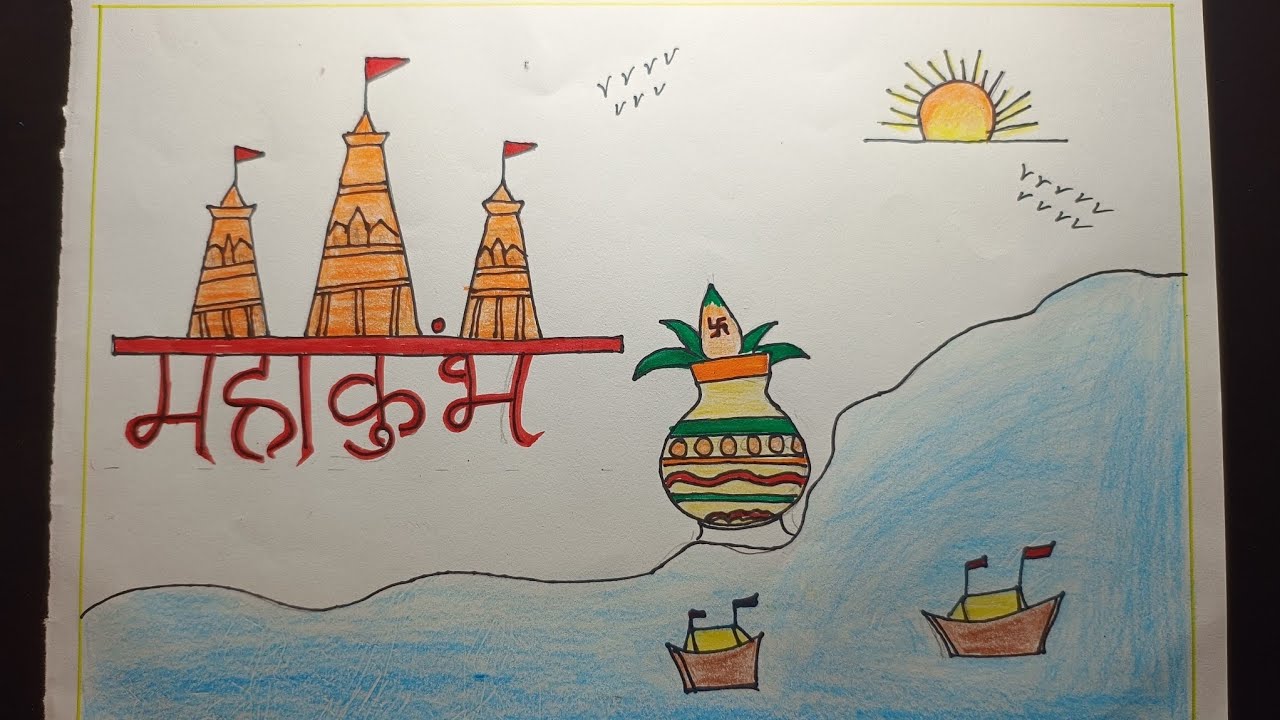 महाकुंभ